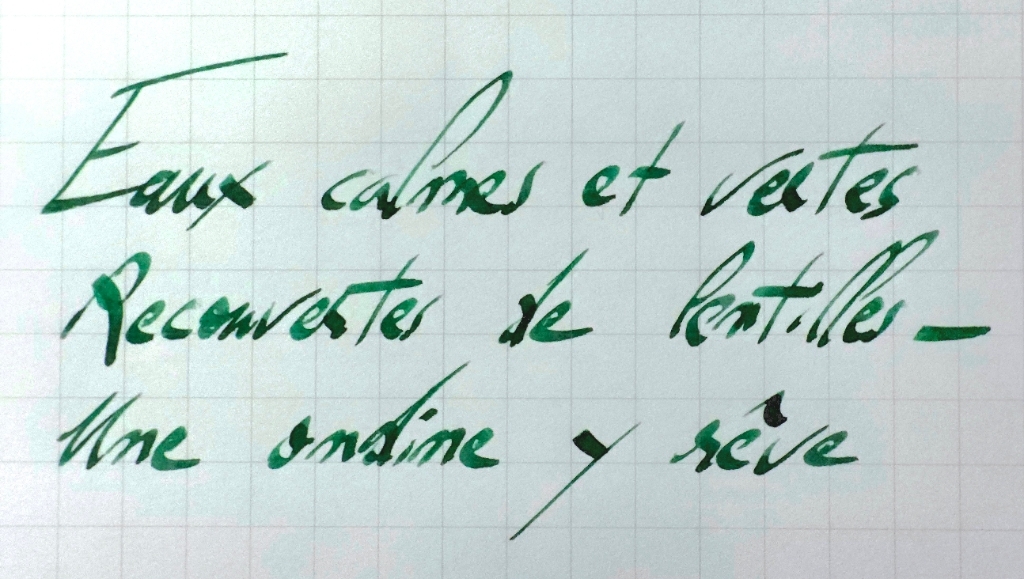 Eaux calmes et vertes
Recouvertes de lentilles –
Une ondine y rêve